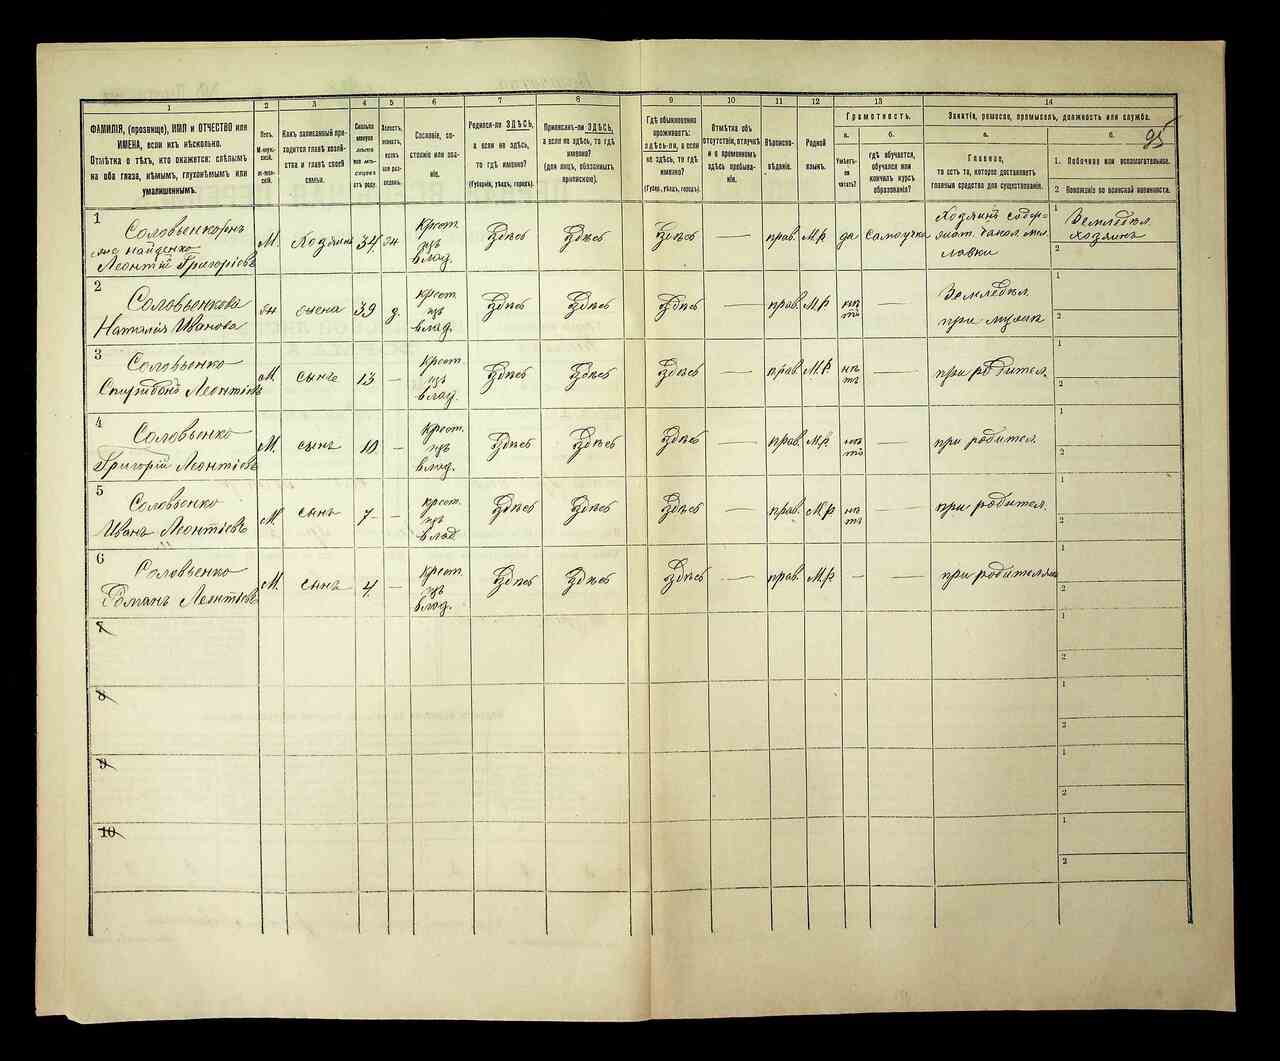 1 2 3 4 5 6 7 8 9 10 11 12 13 14
ФАМИЛІЯ, (прозвище), ИМЯ и ОТЧЕСТВО или
ИМЕНА, если ихъ нѣсколько.
Отмѣтка о тѣхъ, кто окажется: слѣпымъ
на оба глаза, нѣмымъ, глухонѣмымъ или
умалишеннымъ.
Полъ.
М-мужской.
ж-женскій.
Какъ записанный приходится
главѣ хозяйства
и главѣ своей
семьи.
Сколько
минуло
лѣтъ
или мѣсяцевъ
отъ роду.
Холостъ,
женатъ,
вдовъ
или разведенъ.
Сословіе, состояніе
или званіе.
Родился-ли ЗДѢСЬ,
а если не здѣсь,
то гдѣ именно?
(Губернія, уѣздъ, городъ).
Приписанъ-ли ЗДѢСЬ,
а если не здѣсь, то гдѣ
именно?
(для лицъ, обязанныхъ
припискою).
Гдѣ обыкновенно
проживаетъ:
здѣсь-ли, а если
не здѣсь, то гдѣ
именно?
(Губер., уѣздъ, городъ).
Отмѣтка объ
отсутствіи, отлучкѣ
и о временномъ
здѣсь пребываніи.
Вѣроисповѣданіе.
Родной
языкъ.
Грамотность.
а. б.
Умѣетъ-ли
читать?
гдѣ обучается,
обучался или
кончилъ курсъ
образованія?
Занятіе, ремесло, промыселъ, должность или служба.
а. б.
95
Главное,
то есть то, которое доставляетъ
главныя средства для существованія.
1. Побочное или вспомогательное.
2 Положеніе по воинской повинности.
1
Соловьенко
Леонтій Григорьевъ
М. Хозяинъ 34 жн
Крест.
изъ
влад.
Здѣсь Здѣсь Здѣсь — прав. М.р. да самоучка
Хозяинъ
лавки
1 Земледѣл.
хозяинъ
2
2
Соловьенкова
Наталія Иванова
жн жена 39 з.
Крест.
изъ
влад.
Здѣсь Здѣсь Здѣсь — прав. М.р. нѣтъ —
Земледѣл.
при мужѣ
1
2
3
Соловьенко
Леонтіевъ
М. сынъ 13 —
Крест.
изъ
влад.
Здѣсь Здѣсь Здѣсь — прав. М.р. нѣтъ —
при родител.
1
2
4
Соловьенко
Григорій Леонтіевъ
М. сынъ 10 —
Крест.
изъ
влад.
Здѣсь Здѣсь Здѣсь — прав. М.р. нѣтъ —
при родител.
1
2
5
Соловьенко
Иванъ Леонтіевъ
М. сынъ 7 —
Крест.
изъ
влад
Здѣсь Здѣсь Здѣсь — прав. М.р. нѣтъ —
при родител.
1
2
6
Соловьенко
Романъ Леонтіевъ
М. сынъ 4 —
Крест.
изъ
влад.
Здѣсь Здѣсь Здѣсь — прав. М.р. — —
при родителяхъ
1
2
7
1
2
8
1
2
9
1
2
10
1
2